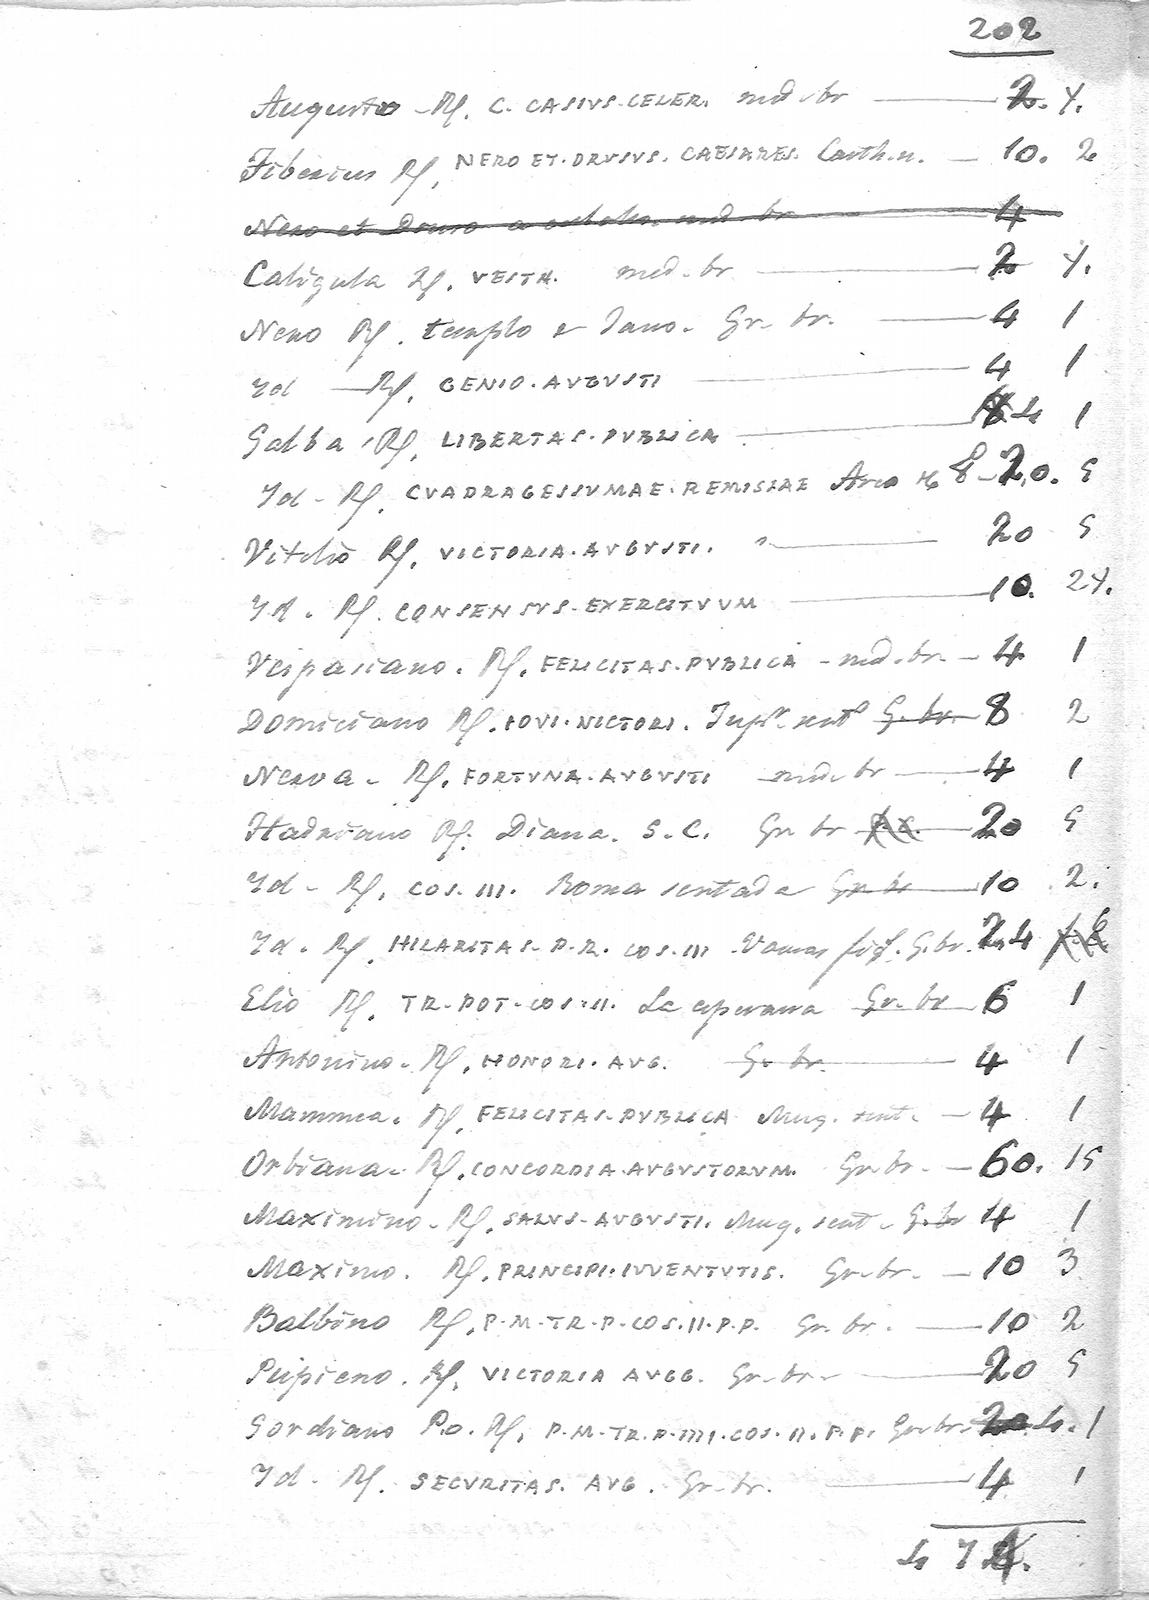 202
Augusto - R/. C. CASIVS-CELER. md. br — 2. y.
Tiberius R/. NERO ET. DRVSVS. CAESARES. Carth.n. — 10. 2
Nero et Druso a caballo. md. br 4
Caligula R/. VESTA. med. br — 2 y.
Nero R/. templo e Jano. Gr. br. — 4 1
Id — R/. GENIO. AVGVSTI — 4 1
Galba R/. LIBERTAS. PVBLICA. — 4 1
Id - R/. CVADRAGESSVMAE. REMISSAE Arco 20. 5
Vitelio R/. VICTORIA. AVGVSTI. — 20 5
Id. R/. CONSENSVS. EXERCITVVM — 10. 2 y.
Vespasiano. R/. FELICITAS. PVBLICA - md. br. - 4 1
Domiciano R/. IOVI. VICTORI. Jupr. sentd G. br. 8 2
Nerva. R/. FORTVNA. AVGVSTI md. br — 4 1
Hadriano R/. Diana. S. C. Gr. br — 20 5
Id - R/. COS. III. Roma sentada Gr. br 10 2.
Id. R/. HILARITAS. P. R. COS. III G. br. 24
Elio R/. TR. POT. COS. II. La esperanza Gr. br 6 1
Antonino. R/. HONORI. AVG. Gr. br. 4 1
Mammea. R/. FELICITAS. PVBLICA Mug. sent. — 4 1
Orbiana. R/. CONCORDIA. AVGVSTORVM. Gr. br. — 60. 15
Maximino. R/. SALVS. AVGVSTI. Mug. sent - G. br 4 1
Maximo. R/. PRINCIPI. IVVENTVTIS. Gr. br. — 10 3
Balbino R/. P. M. TR. P. COS. II. P. P. Gr. br. — 10 2
Pupieno. R/. VICTORIA AVGG. Gr. br. — 20 5
Gordiano P.o. R/. P. M. TR. P. IIII. COS. II. P. P. Gr. br. 20 4. 1
Id. R/. SECVRITAS. AVG. Gr. br. — 4 1